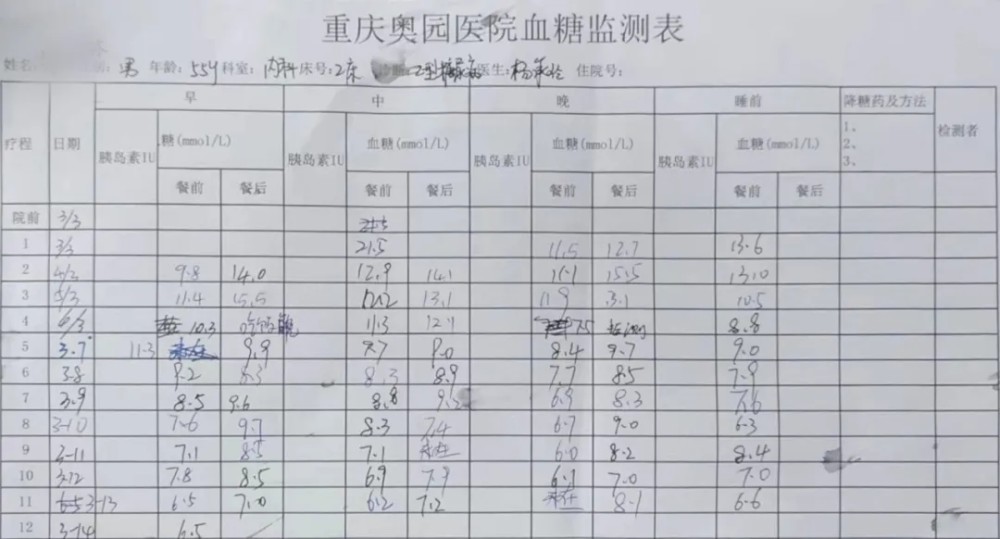 重庆奥园医院血糖监测表
姓名: 男 年龄: 55岁 科室: 内科 床号: 2床 2型糖尿病 医生: 住院号:
疗程 日期 早 中 晚 睡前 降糖药及方法 检测者
胰岛素IU 糖(mmol/L) 胰岛素IU 血糖(mmol/L) 胰岛素IU 血糖(mmol/L) 胰岛素IU 血糖(mmol/L) 1、 2、 3、
餐前 餐后 餐前 餐后 餐前 餐后 餐前 餐后
院前 3/3
1 3/3 21.5 11.5 12.7 13.6
2 4/3 9.8 14.0 12.9 14.1 11.1 15.5 13.0
3 5/3 11.4 15.5 12.2 13.1 11.9 10.5
4 6/3 10.3 11.3 12.1 7.5 8.8
5 3.7 11.3 9.9 9.7 9.0 8.4 9.7 9.0
6 3.8 9.2 8.3 8.3 8.9 7.7 8.5 7.9
7 3.9 8.5 9.6 8.8 9.2 6.9 8.3 7.6
8 3-10 7.6 9.7 8.3 7.4 6.7 9.0 6.3
9 3-11 7.1 8.5 7.1 6.0 8.2 8.4
10 3.12 7.8 8.5 6.9 7.9 6.1 7.0 7.0
11 3-13 6.5 7.0 6.2 7.2 8.1 6.6
12 3-14 6.5